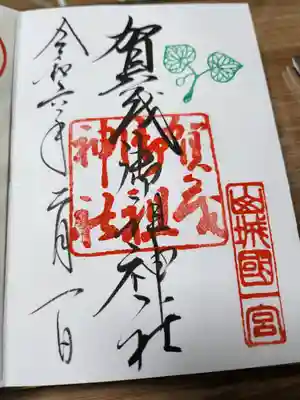 山城國一宮
賀茂御祖神社
賀茂
御祖
神社
令和六年二月一日